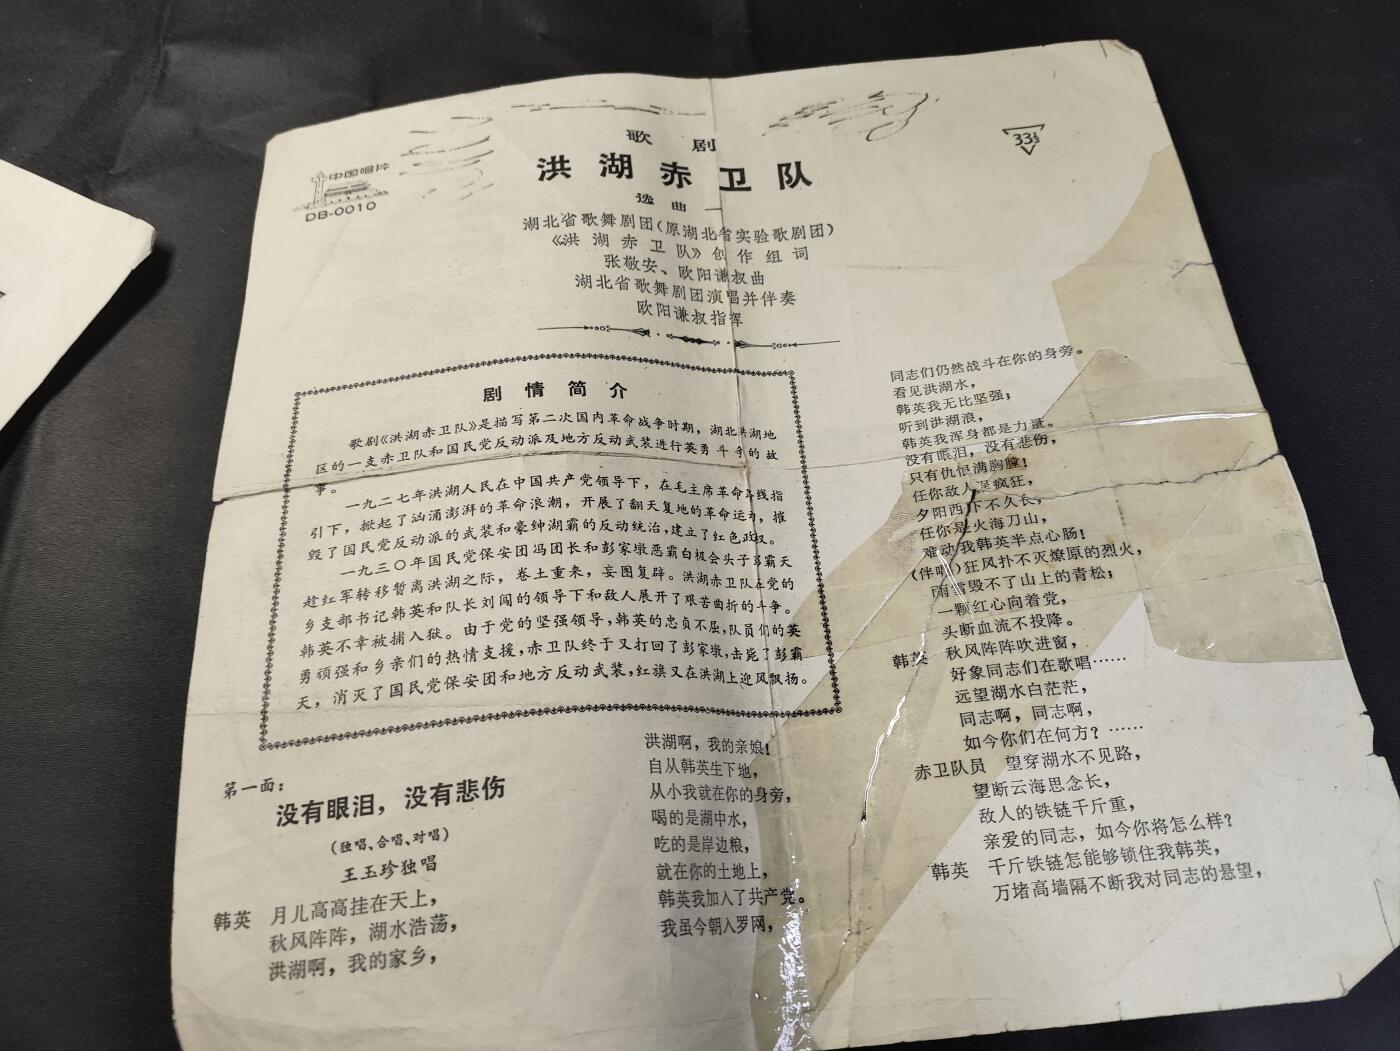 中国唱片
DB-0010
33⅓
歌剧
洪湖赤卫队
选曲一
湖北省歌舞剧团(原湖北省实验歌剧团)
《洪湖赤卫队》创作组词
张敬安、欧阳谦叔曲
湖北省歌舞剧团演唱并伴奏
欧阳谦叔指挥
剧情简介
歌剧《洪湖赤卫队》是描写第二次国内革命战争时期,湖北洪湖地
区的一支赤卫队和国民党反动派及地方反动武装进行英勇斗争的故
事。
一九二七年洪湖人民在中国共产党领导下,在毛主席革命路线指
引下,掀起了汹涌澎湃的革命浪潮,开展了翻天复地的革命运动,摧
毁了国民党反动派的武装和豪绅湖霸的反动统治,建立了红色政权。
一九三〇年国民党保安团冯团长和彭家墩恶霸白极会头子彭霸天
趁红军转移暂离洪湖之际,卷土重来,妄图复辟。洪湖赤卫队在党的
乡支部书记韩英和队长刘闯的领导下和敌人展开了艰苦曲折的斗争。
韩英不幸被捕入狱。由于党的坚强领导,韩英的忠贞不屈,队员们的英
勇顽强和乡亲们的热情支援,赤卫队终于又打回了彭家墩,击毙了彭霸
天,消灭了国民党保安团和地方反动武装,红旗又在洪湖上迎风飘扬。
第一面:
没有眼泪,没有悲伤
(独唱、合唱、对唱)
王玉珍独唱
韩英 月儿高高挂在天上,
秋风阵阵,湖水浩荡,
洪湖啊,我的家乡,
洪湖啊,我的亲娘!
自从韩英生下地,
从小我就在你的身旁,
喝的是湖中水,
吃的是岸边粮,
就在你的土地上,
韩英我加入了共产党。
我虽今朝入罗网,
同志们仍然战斗在你的身旁。
看见洪湖水,
韩英我无比坚强;
听到洪湖浪,
韩英我浑身都是力量。
没有眼泪,没有悲伤,
只有仇恨满胸膛!
任你敌人逞疯狂,
夕阳西下不久长,
任你是火海刀山,
难动我韩英半点心肠!
(伴唱)狂风扑不灭燎原的烈火,
雨雪毁不了山上的青松;
一颗红心向着党,
头断血流不投降。
韩英 秋风阵阵吹进窗,
好象同志们在歌唱……
远望湖水白茫茫,
同志啊,同志啊,
如今你们在何方?……
赤卫队员 望穿湖水不见路,
望断云海思念长,
敌人的铁链千斤重,
亲爱的同志,如今你将怎么样?
韩英 千斤铁链怎能够锁住我韩英,
万堵高墙隔不断我对同志的悬望,